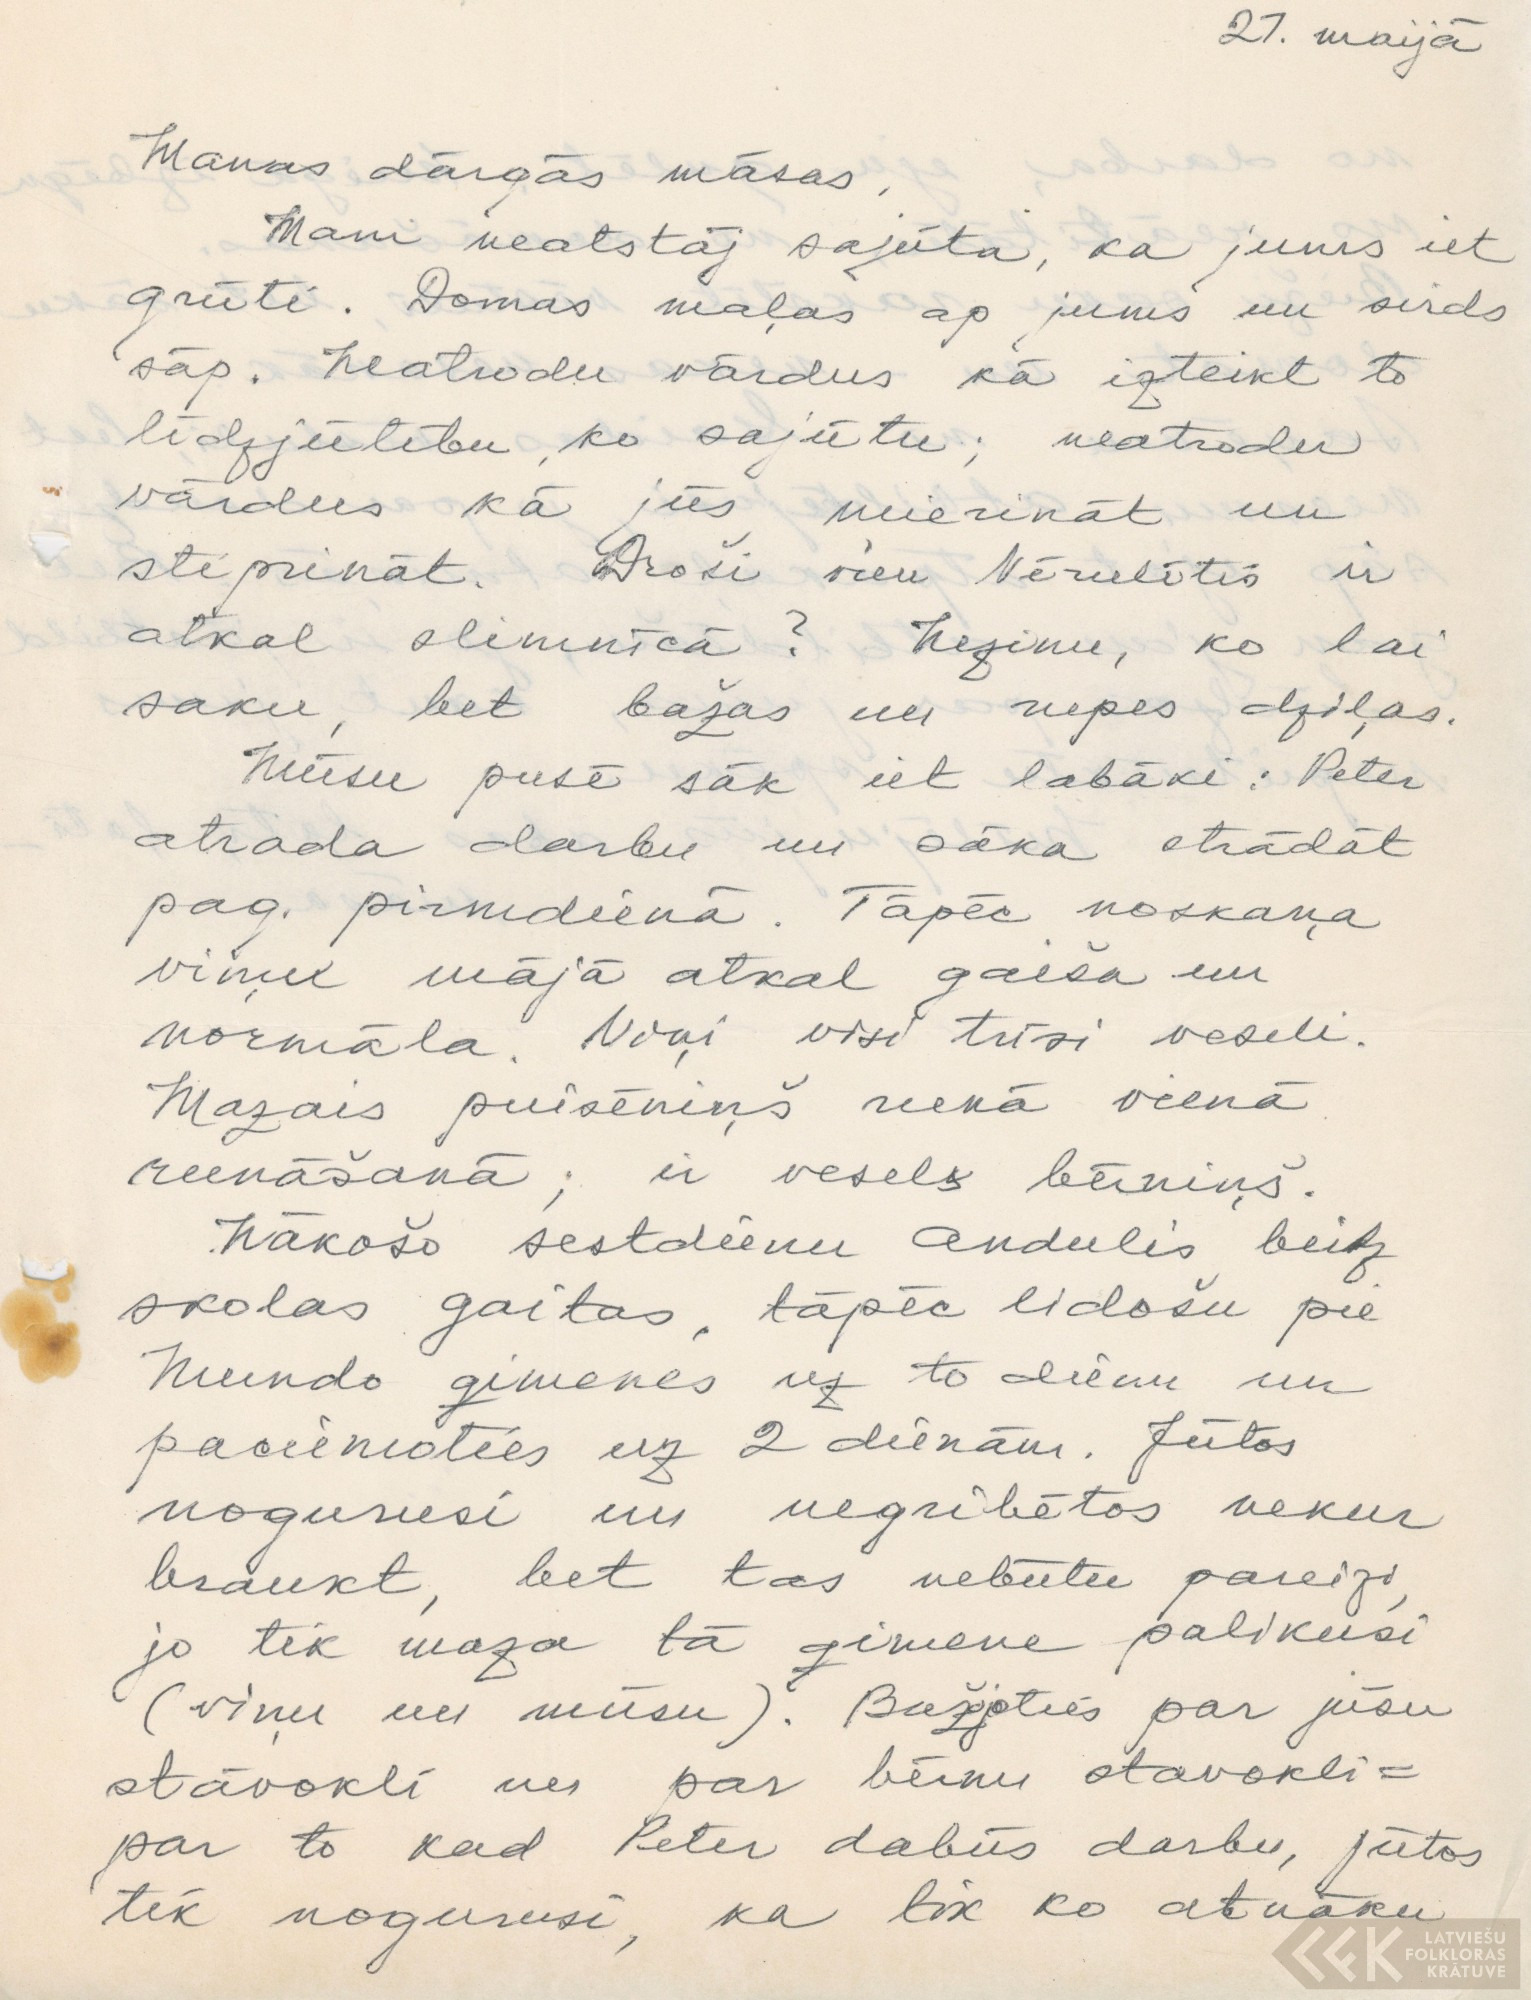 21. maijā
Manas dārgās māsas,
Mani neatstāj sajūta, ka jums iet
grūti. Domas maļas ap jums un sirds
sāp. Neatrodu vārdus kā izteikt to
līdzjūtību, ko sajūtu; neatrodu
vārdus kā jūs mierināt un
stiprināt. Droši vien Vērulītis ir
atkal slimnīcā? Nezinu, ko lai
saku, bet bažas un rupes dziļas.
Mūsu pusē sāk iet labāki: Peter
atrada darbu un sāka strādāt
pag. pirmdienā. Tāpēc noskaņa
viņu mājā atkal gaiša un
normāla. Viņi visi trīsi veseli.
Mazais puisēniņš runā vienā
runāšanā; ir vesels bērniņš.
Nākošo sestdienu Andulis beidz
skolas gaitas, tāpēc lidošu pie
Mundo ģimenes uz to dienu un
paciemoties uz 2 dienām. Jūtos
nogurusi un negribētos nekur
braukt, bet tas nebūtu pareizi,
jo tik maza tā ģimene palikusi
(viņu un mūsu). Bažjoties par jūsu
stāvokli un par bērnu stavokli=
par to kad Peter dabūs darbu, jūtos
tik nogurusi, ka tik ko atnāku
LATVIEŠU
FOLKLORAS
KRĀTUVE